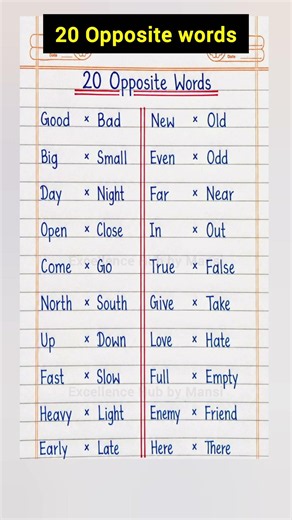 20 Opposite words
20 Opposite Words
Good × Bad
Big × Small
Day × Night
Open × Close
Come × Go
North × South
Up × Down
Fast × Slow
Heavy × Light
Early × Late
New × Old
Even × Odd
Far × Near
In × Out
True × False
Give × Take
Love × Hate
Full × Empty
Enemy × Friend
Here × There
Excellence Hub by Mansi
Excellence Hub by Mansi